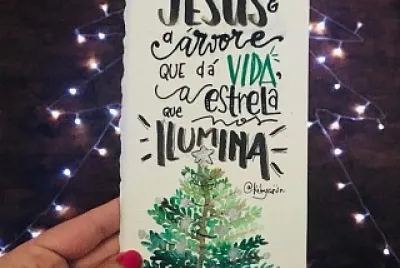 JESUS é
a árvore
QUE DÁ VIDA,
a estrela
que nos
ILUMINA